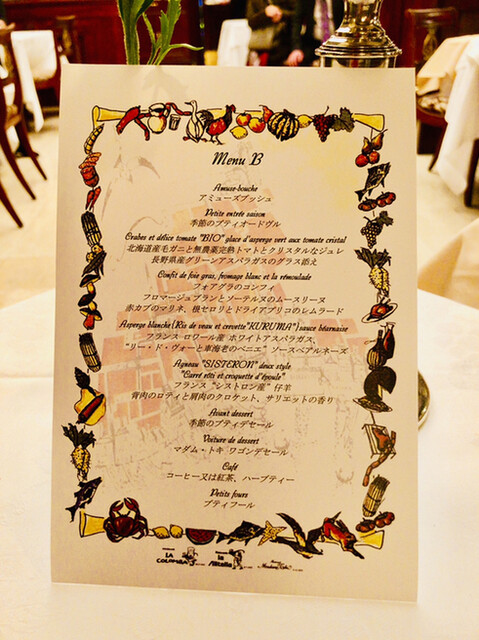 Menu B
Amuse-bouche
アミューズブッシュ
Petite entrée saison
季節のプティオードヴル
Crabes et délice tomate "BIO" glace d'asperge vert aux tomate cristal
北海道産毛ガニと無農薬完熟トマトとクリスタルなジュレ
長野県産グリーンアスパラガスのグラス添え
Confit de foie gras, fromage blanc et la rémoulade
フォアグラのコンフィ
フロマージュブランとソーテルヌのムースリーヌ
赤カブのマリネ、根セロリとドライアプリコのレムラード
Asperge blanche (Ris de veau et crevette "KURUMA") sauce béarnaise
フランス ロワール産 ホワイトアスパラガス、
"リー・ド・ヴォーと車海老のベニエ" ソースベアルネーズ
Agneau "SISTERON" deux style
"Carré rôti et croquette d'épaule"
フランス "シストロン産" 仔羊
背肉のロティと肩肉のクロケット、サリエットの香り
Avant dessert
季節のプティデセール
Voiture de dessert
マダム・トキ ワゴンデセール
Café
コーヒー又は紅茶、ハーブティー
Petits fours
プティフール
LA COLOMBA
la